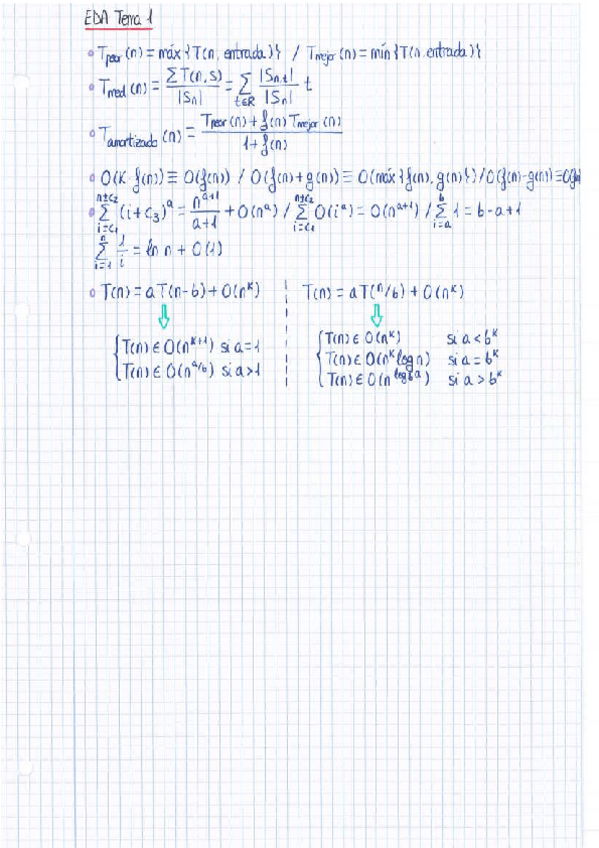 EDA Tema 1
• Tpeor(n) = máx {T(n, entrada)} / Tmejor(n) = mín {T(n, entrada)}
• Tmed(n) = ΣT(n,s)/|Sn| = Σ_{t∈R} |Sn,t|/|Sn| t
• Tamortizado(n) = (Tpeor(n) + f(n) Tmejor(n))/(1 + f(n))
• O(K·f(n)) ≡ O(f(n)) / O(f(n)+g(n)) ≡ O(máx{f(n), g(n)}) / O(f(n)-g(n)) ≡ O(f(n)
• Σ_{i=c₁}^{n±c₂} (i+c₃)^a = n^{a+1}/(a+1) + O(n^a) / Σ_{i=c₁}^{n±c₂} O(i^a) = O(n^{a+1}) / Σ_{i=a}^{b} 1 = b-a+1
Σ_{i=1}^{n} 1/i = ln n + O(1)
• T(n) = aT(n-b) + O(n^k) T(n) = aT(n/b) + O(n^k)
T(n) ∈ O(n^{k+1}) si a=1 T(n) ∈ O(n^k) si a < b^k
T(n) ∈ O(n^{a/b}) si a>1 T(n) ∈ O(n^k log n) si a = b^k
T(n) ∈ O(n^{log_b a}) si a > b^k